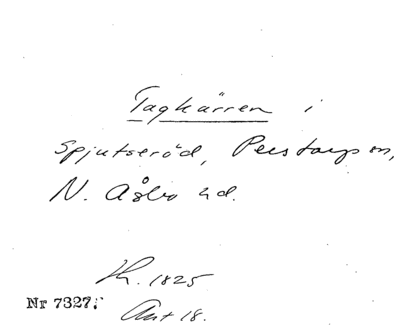 Tagkärren i
Spjutseröd, Perstorps sn,
N. Åsbo hd.
Th. 1825
Nr 7327.
Akt 18.